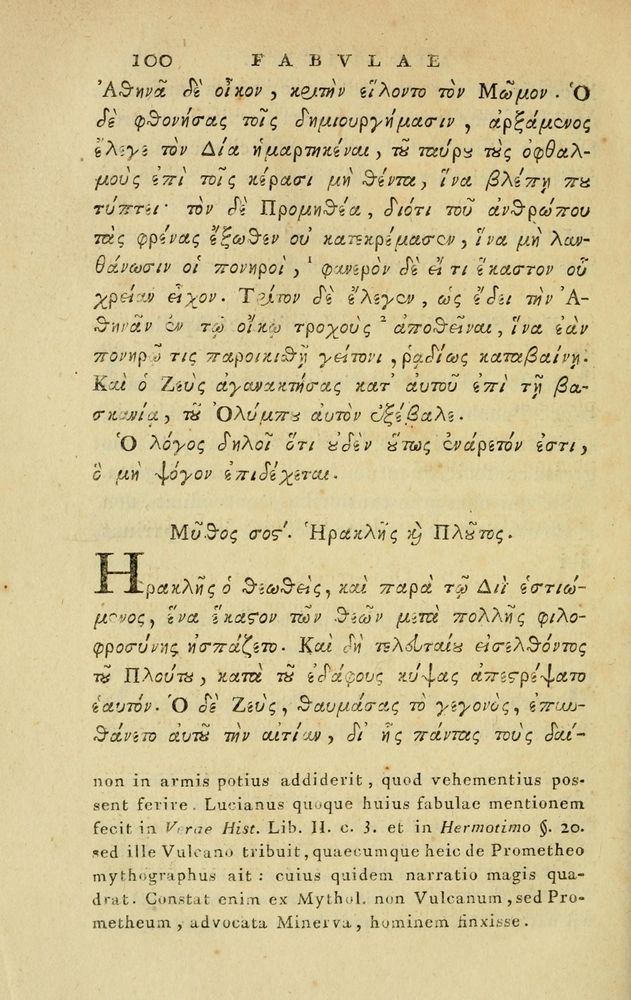 100 FABVLAE
Ἀθηνᾶ δὲ οἶκον, κριτὴν εἵλοντο τὸν Μῶμον. Ὁ
δὲ φθονήσας τοῖς δημιουργήμασιν, ἀρξάμενος
ἔλεγε τὸν Δία ἡμαρτηκέναι, τοῦ ταύρου τοὺς ὀφθαλ-
μοὺς ἐπὶ τοῖς κέρασι μὴ θέντα, ἵνα βλέπῃ που
τύπτει· τὸν δὲ Προμηθέα, διότι τοῦ ἀνθρώπου
τὰς φρένας ἔξωθεν οὐ κατεκρέμασεν, ἵνα μὴ λαν-
θάνωσιν οἱ πονηροὶ, ¹ φανερὸν δὲ εἴ τι ἕκαστον οὗ
χρείαν εἶχον. Τρίτον δὲ ἔλεγεν, ὡς ἔδει τὴν Ἀ-
θηνᾶν ἐν τῷ οἴκῳ τροχοὺς ² ἀποθεῖναι, ἵνα ἐὰν
πονηρῷ τις παροικιθῇ γείτονι, ῥαδίως καταβαίνῃ.
Καὶ ὁ Ζεὺς ἀγανακτήσας κατ' αὐτοῦ ἐπὶ τῇ βα-
σκανίᾳ, τοῦ Ὀλύμπου αὐτὸν ἐξέβαλε.
Ὁ λόγος δηλοῖ ὅτι οὐδὲν οὕτως ἐνάρετόν ἐστι,
ὃ μὴ ψόγον ἐπιδέχεται.
Μῦθος σοϛ'. Ἡρακλῆς καὶ Πλοῦτος.
Ἡρακλῆς ὁ θεωθεὶς, καὶ παρὰ τῷ Διῒ ἑστιώ-
μενος, ἕνα ἕκαστον τῶν θεῶν μετὰ πολλῆς φιλο-
φροσύνης ἠσπάζετο. Καὶ δὴ τελευταίου εἰσελθόντος
τοῦ Πλούτου, κατὰ τοῦ ἐδάφους κύψας ἀπεστρέψατο
ἑαυτόν. Ὁ δὲ Ζεὺς, θαυμάσας τὸ γεγονὸς, ἐπυν-
θάνετο αὐτοῦ τὴν αἰτίαν, δι' ἧς πάντας τοὺς δαί-
non in armis potius addiderit, quod vehementius pos-
sent ferire. Lucianus quoque huius fabulae mentionem
fecit in Verae Hist. Lib. II. c. 3. et in Hermotimo §. 20.
sed ille Vulcano tribuit, quaecumque heic de Prometheo
mythographus ait: cuius quidem narratio magis qua-
drat. Constat enim ex Mythol. non Vulcanum, sed Pro-
metheum, advocata Minerva, hominem finxisse.